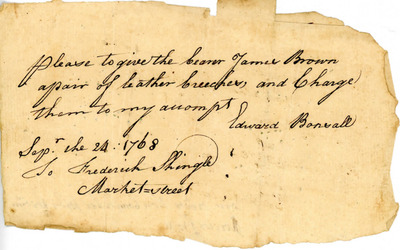 Please to give the bearr James Brown
apair of leather breeches, and Charge
them to my accompt
Edward Bonsall
Sepr. the 24. 1768
To Frederick Shingle
Market=street